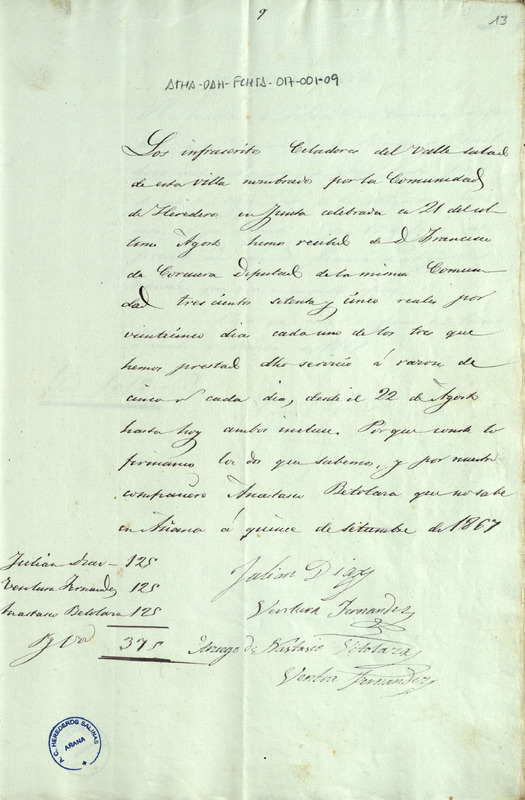 9
13
ATHA-DAH-FCHSA-017-001-09
Los infrascrito Celadores del Valle salad
de esta villa nombrados por la Comunidad
de Heredero en Junta celebrada en 21 del ul
timo Agosto hemo recibid de D Francisco
de Corcuera Diputad de la misma Comun
dad tres cientos setenta y cinco reales por
veinticinco dia cada uno de los tres que
hemos prestad dho servicio á razon de
cinco r cada dia, desde el 22 de Agosto
hasta hoy ambos inclusi. Porque conste lo
firmamos los dos que sabemos, y por nuestro
compañero Anastasio Betolaza que no sabe
en Añana á quince de setiembre de 1867
Julian Diaz - 125
Ventura Fernandez 125
Anastasio Betolaza 125
375
Julian Diaz
Ventura Fernandez
A ruego de Nastasio Vetolaza
Ventura Fernandez
A.C. HEREDEROS SALINAS
AÑANA